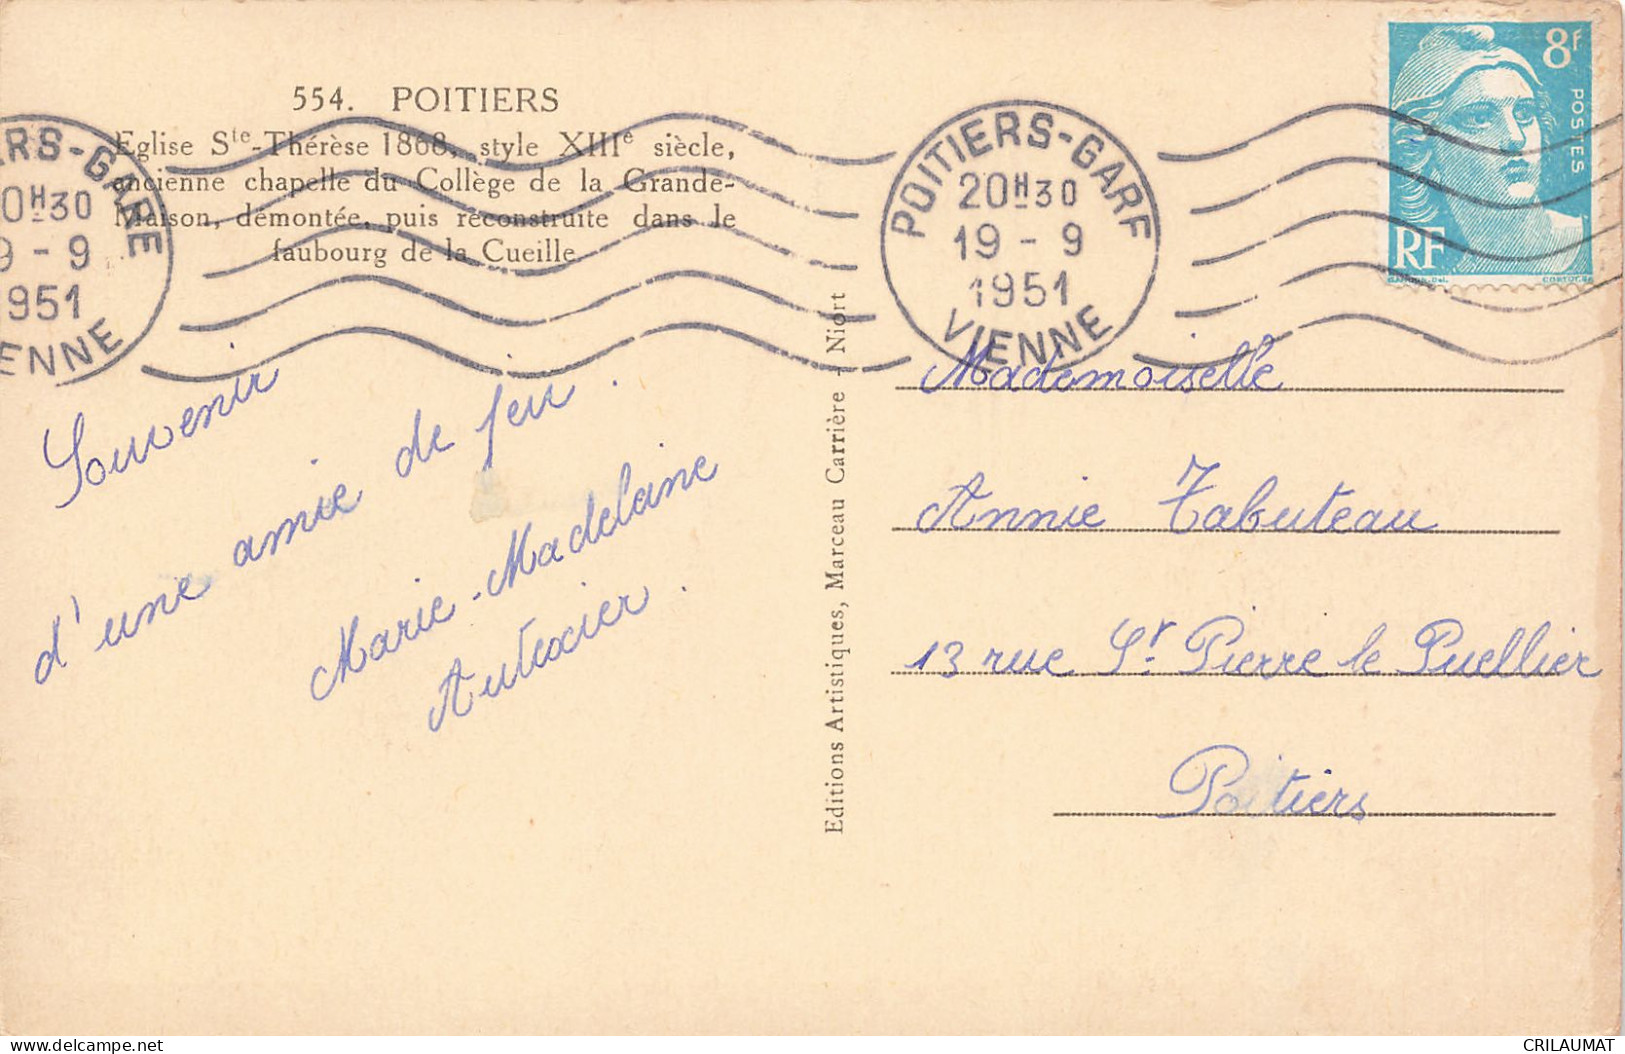 554. POITIERS
Eglise Ste-Thérèse 1868, style XIIIe siècle,
ancienne chapelle du Collège de la Grande-
Maison, démontée, puis reconstruite dans le
faubourg de la Cueille
RS-GARE
0H30
9-9
1951
ENNE
POITIERS-GARE
20H30
19-9
1951
VIENNE
8f
POSTES
RF
Souvenir
d'une amie de jeu.
Marie-Madelaine
Autexier.
Editions Artistiques, Marceau Carrière - Niort
Mademoiselle
Annie Tabuteau
13 rue St Pierre le Puellier
Poitiers
CRILAUMAT